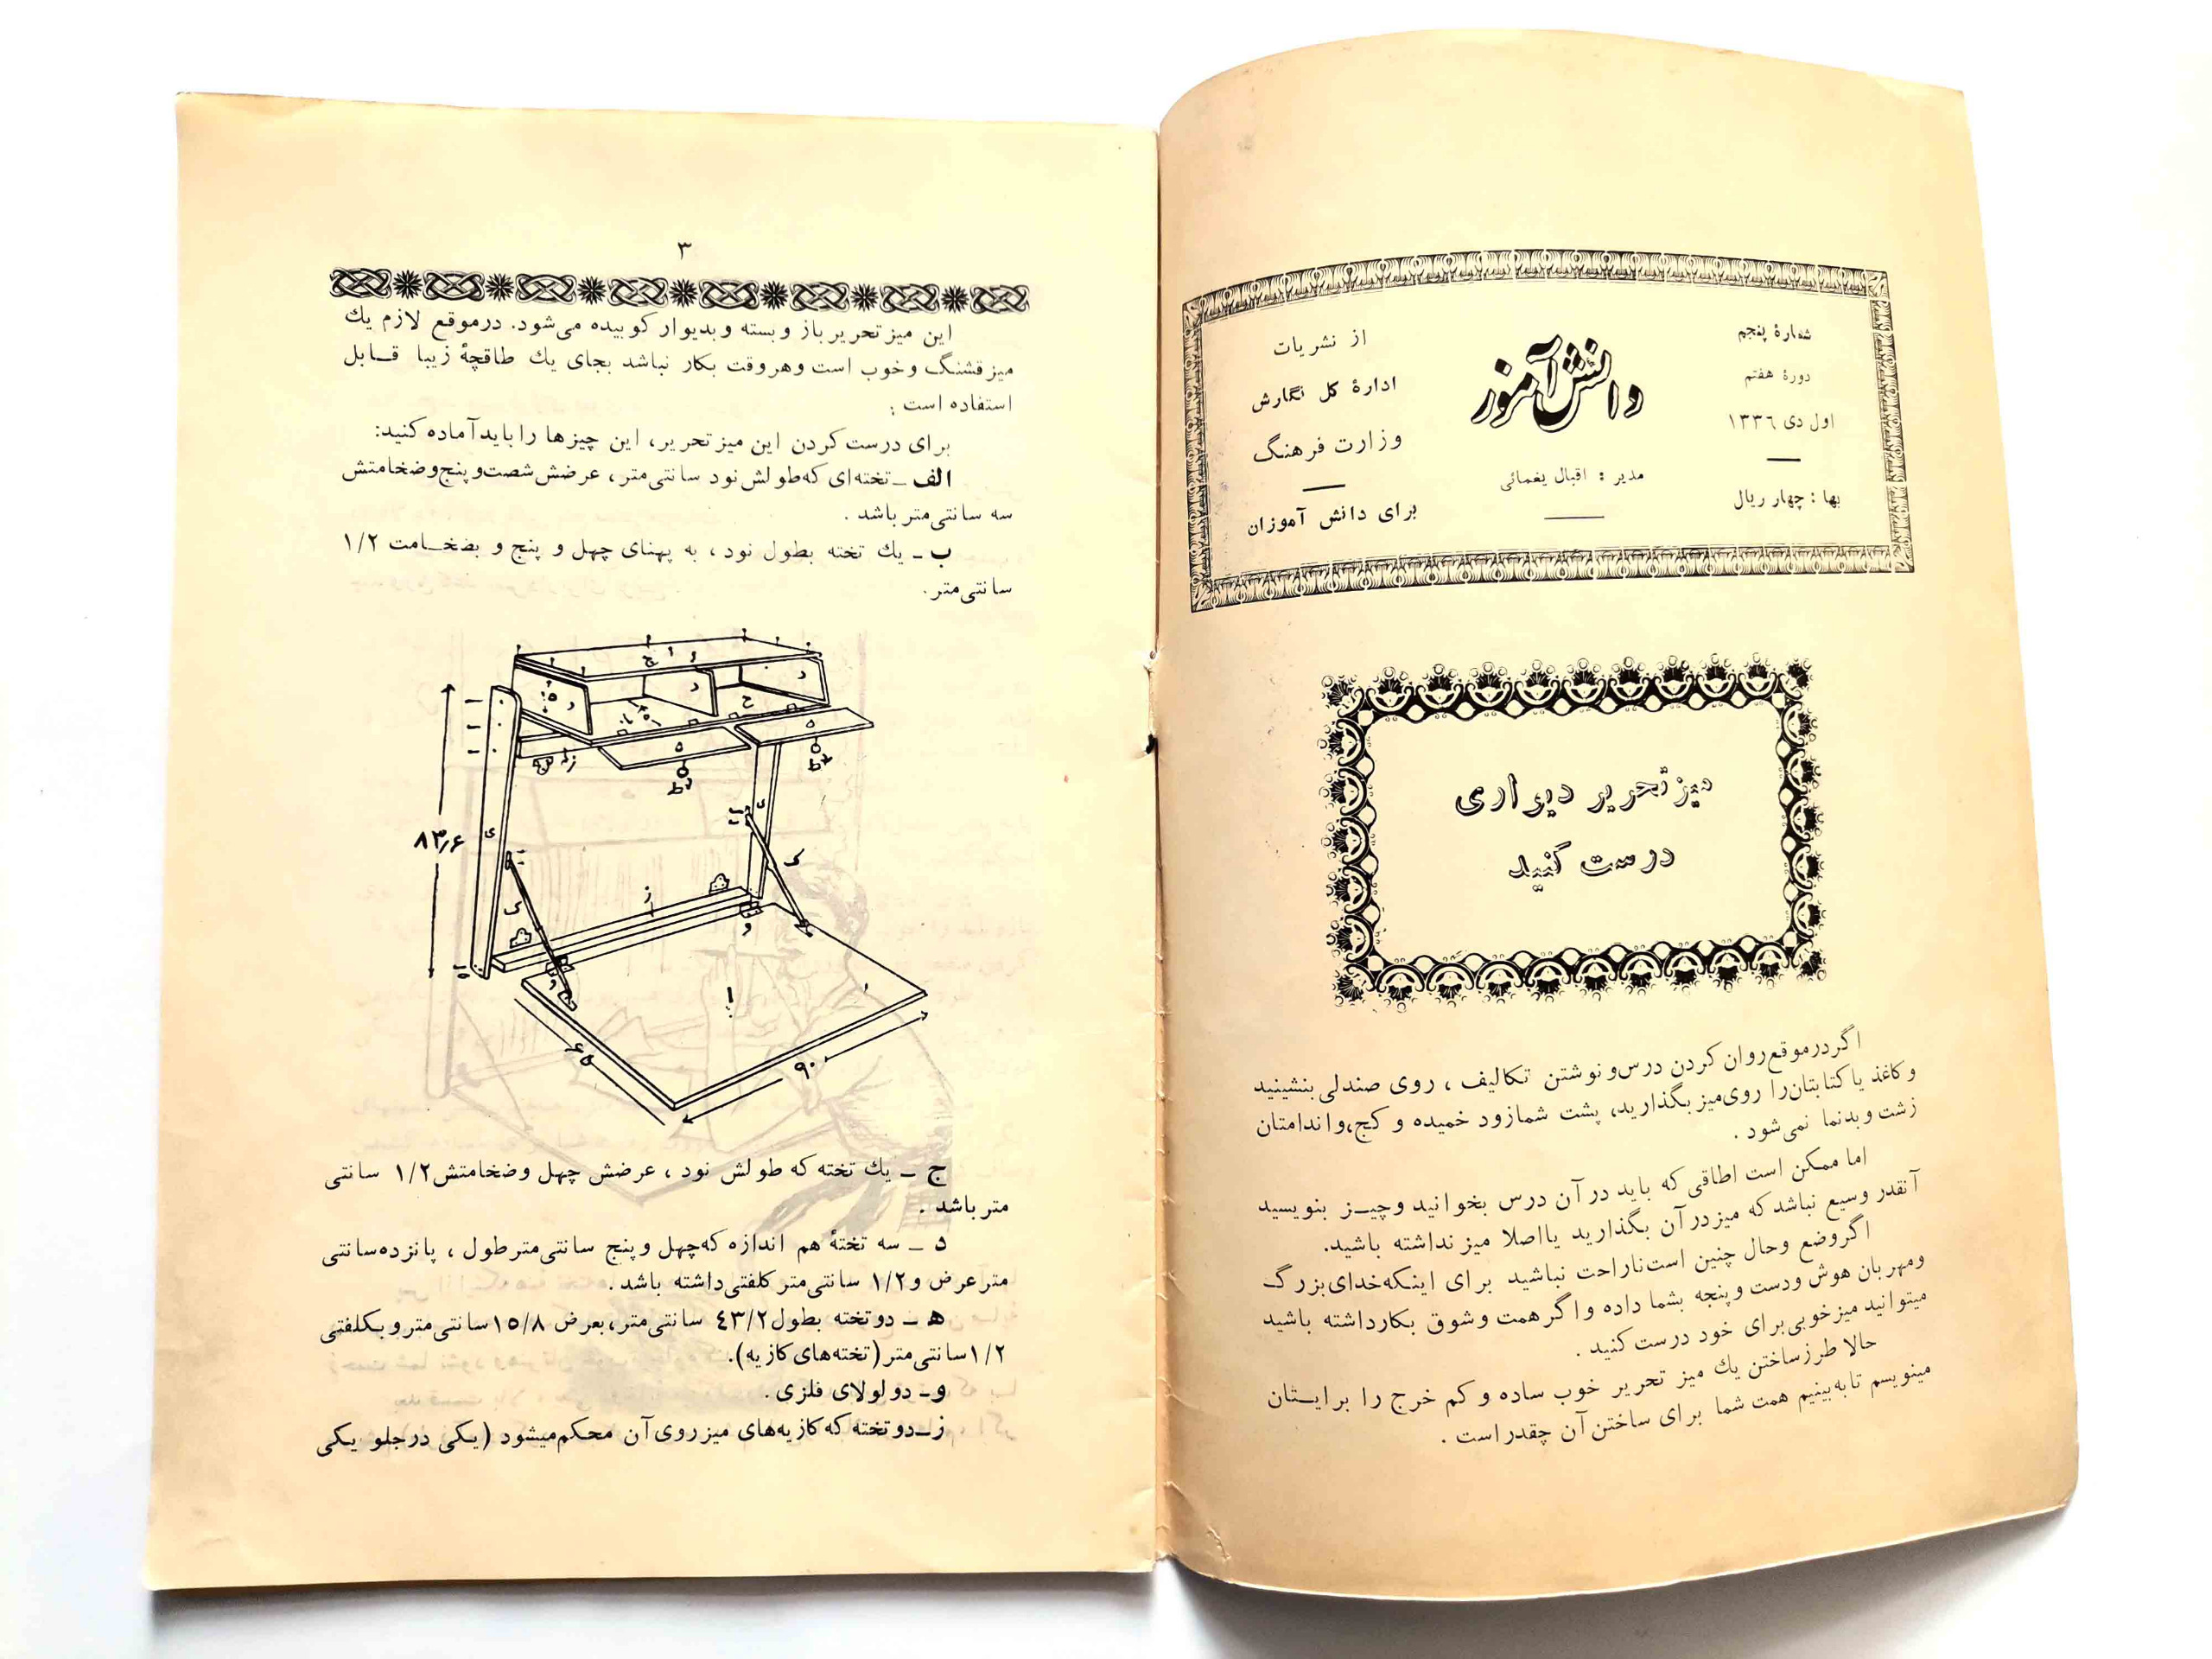 شمارهٔ پنجم
دورهٔ هفتم
اول دی ۱۳۳۶
بها : چهار ریال
دانش‌آموز
مدیر : اقبال یغمائی
از نشریات
ادارهٔ کل نگارش
وزارت فرهنگ
برای دانش آموزان
میز تحریر دیواری
درست کنید
اگر در موقع روان کردن درس و نوشتن تکالیف ، روی صندلی بنشینید
و کاغذ یا کتابتان را روی میز بگذارید، پشت شما زود خمیده و کج، و اندامتان
زشت و بدنما نمی‌شود .
اما ممکن است اطاقی که باید در آن درس بخوانید و چیـز بنویسید
آنقدر وسیع نباشد که میز در آن بگذارید یا اصلا میز نداشته باشید.
اگر وضع و حال چنین است ناراحت نباشید برای اینکه خدای بزرگ
و مهربان هوش و دست و پنجه بشما داده و اگر همت و شوق بکار داشته باشید
میتوانید میز خوبی برای خود درست کنید .
حالا طرز ساختن یك میز تحریر خوب ساده و کم خرج را برایـتان
مینویسم تا به‌بینیم همت شما برای ساختن آن چقدر است .
۳
این میز تحریر باز و بسته و بدیوار کوبیده می‌شود. در موقع لازم یك
میز قشنگ و خوب است و هر وقت بکار نباشد بجای یك طاقچهٔ زیبا قـابل
استفاده است :
برای درست کردن این میز تحریر، این چیزها را باید آماده کنید:
الف ـ تخته‌ای که طولش نود سانتی‌متر ، عرضش شصت و پنج و ضخامتش
سه سانتی‌متر باشد .
ب ـ یك تخته بطول نود ، به پهنای چهل و پنج و بضخـامت ۱/۲
سانتی‌متر .
۸۳٫۶
۶۵
۹۰
ج ـ یك تخته که طولش نود ، عرضش چهل و ضخامتش ۱/۲ سانتی
متر باشد .
د ـ سه تختهٔ هم اندازه که چهل و پنج سانتی‌متر طول ، پانزده سانتی
متر عرض و ۱/۲ سانتی‌متر کلفتی داشته باشد .
ه ـ دو تخته بطول ۴۳/۲ سانتی‌متر، بعرض ۱۵/۸ سانتی‌متر و بکلفتی
۱/۲ سانتی‌متر (تخته‌های کازیه).
و ـ دو لولای فلزی .
ز ـ دو تخته که کازیه‌های میز روی آن محکم میشود (یکی در جلو یکی